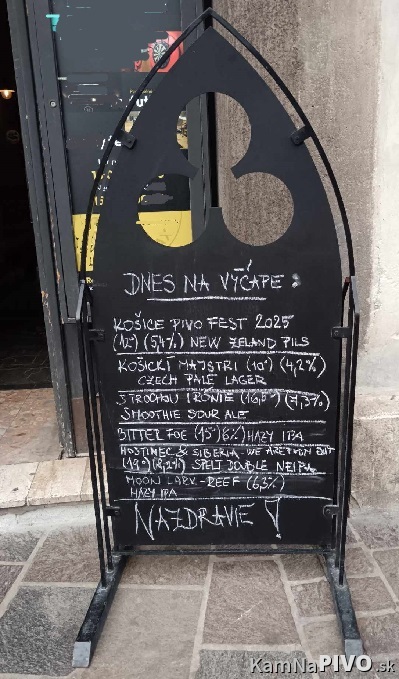 DNES NA VÝČAPE:
KOŠICE PIVO FEST 2025
(12°) (5,4%) NEW ZELAND PILS
KOŠICKÍ MAJSTRI (10°) (4,2%)
CZECH PALE LAGER
S TROCHOU IRÓNIE (16,5°) (7,3%)
SMOOTHIE SOUR ALE
BITTER FOE (15°) 6%) HAZY IPA
HOSTINEC & SIBERIA - WE ARE FROM BUT
(19°) (8,2%) SPLIT DOUBLE NEIPA
MOON LARK - REEF (6,3%)
HAZY IPA
NAZDRAVIE!
KamNaPIVO.sk